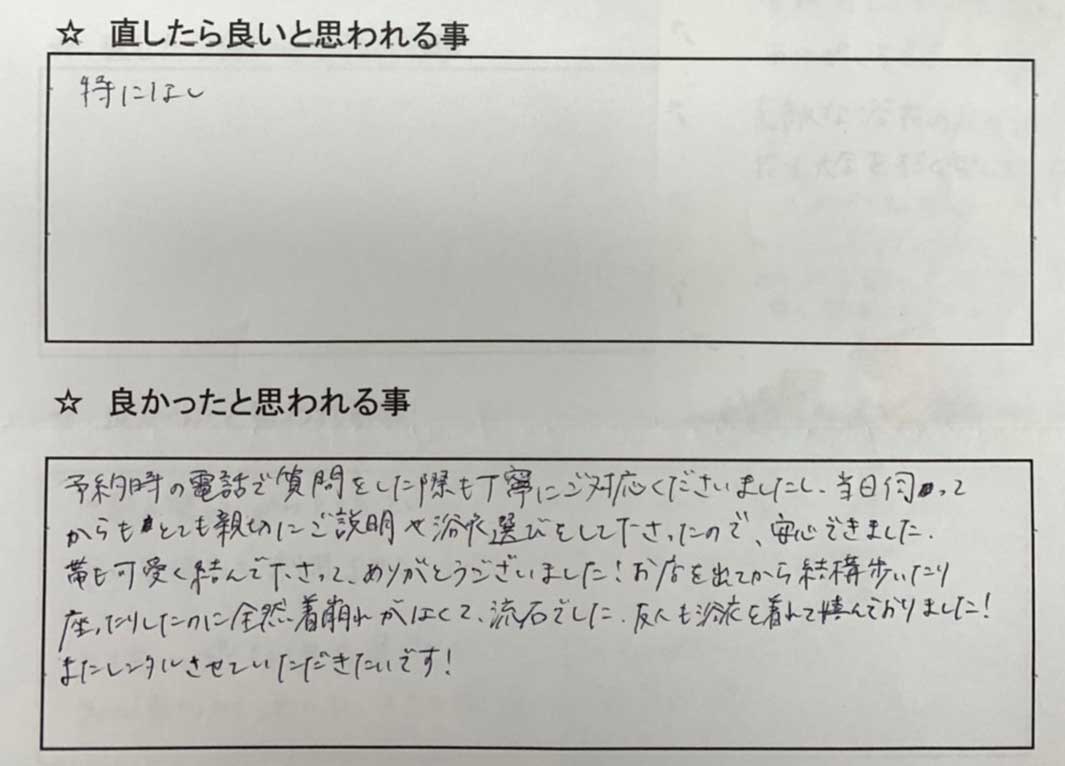 ☆ 直したら良いと思われる事
特になし
☆ 良かったと思われる事
予約時の電話で質問をした際も丁寧にご対応くださいましたし、当日伺って
からもとても親切にご説明や浴衣選びをして下さったので、安心できました.
帯も可愛く結んで下さって、ありがとうございました！お店を出てから結構歩いたり
座ったりしたのに全然着崩れがなくて、流石でした. 友人も浴衣を着れて喜んでおりました！
またレンタルさせていただきたいです！